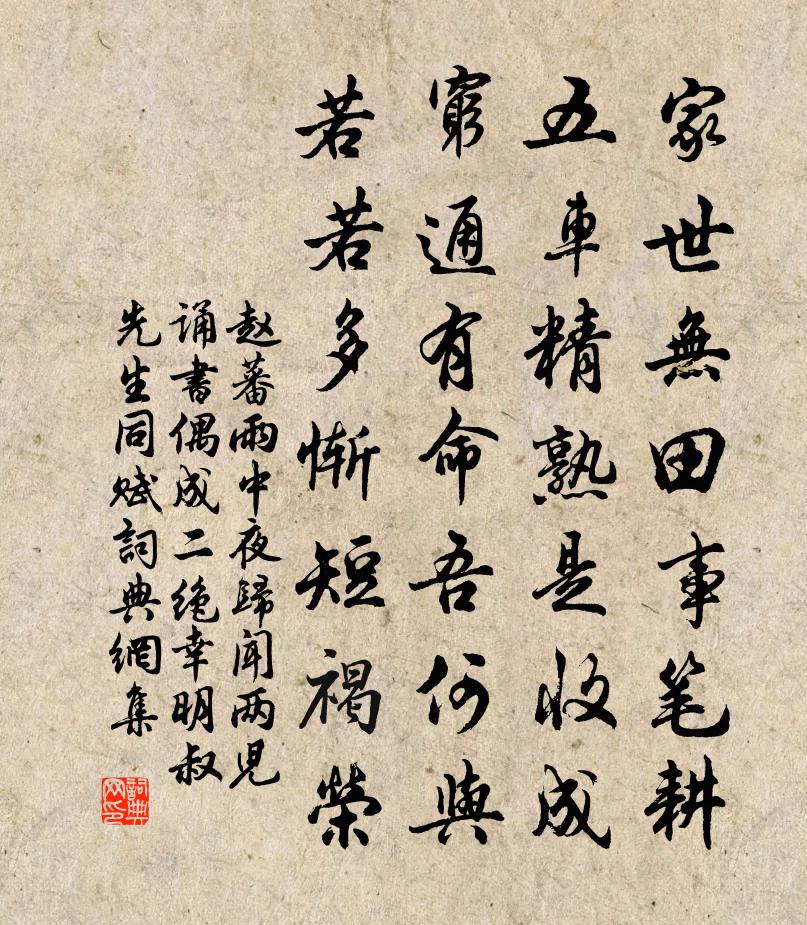 家世無田事笔耕
五車精熟是收成
窮通有命吾何與
若若多惭短褐榮
赵蕃雨中夜歸闻两兒
诵書偶成二绝幸明叔
先生同赋詞典網集
詞典
网印